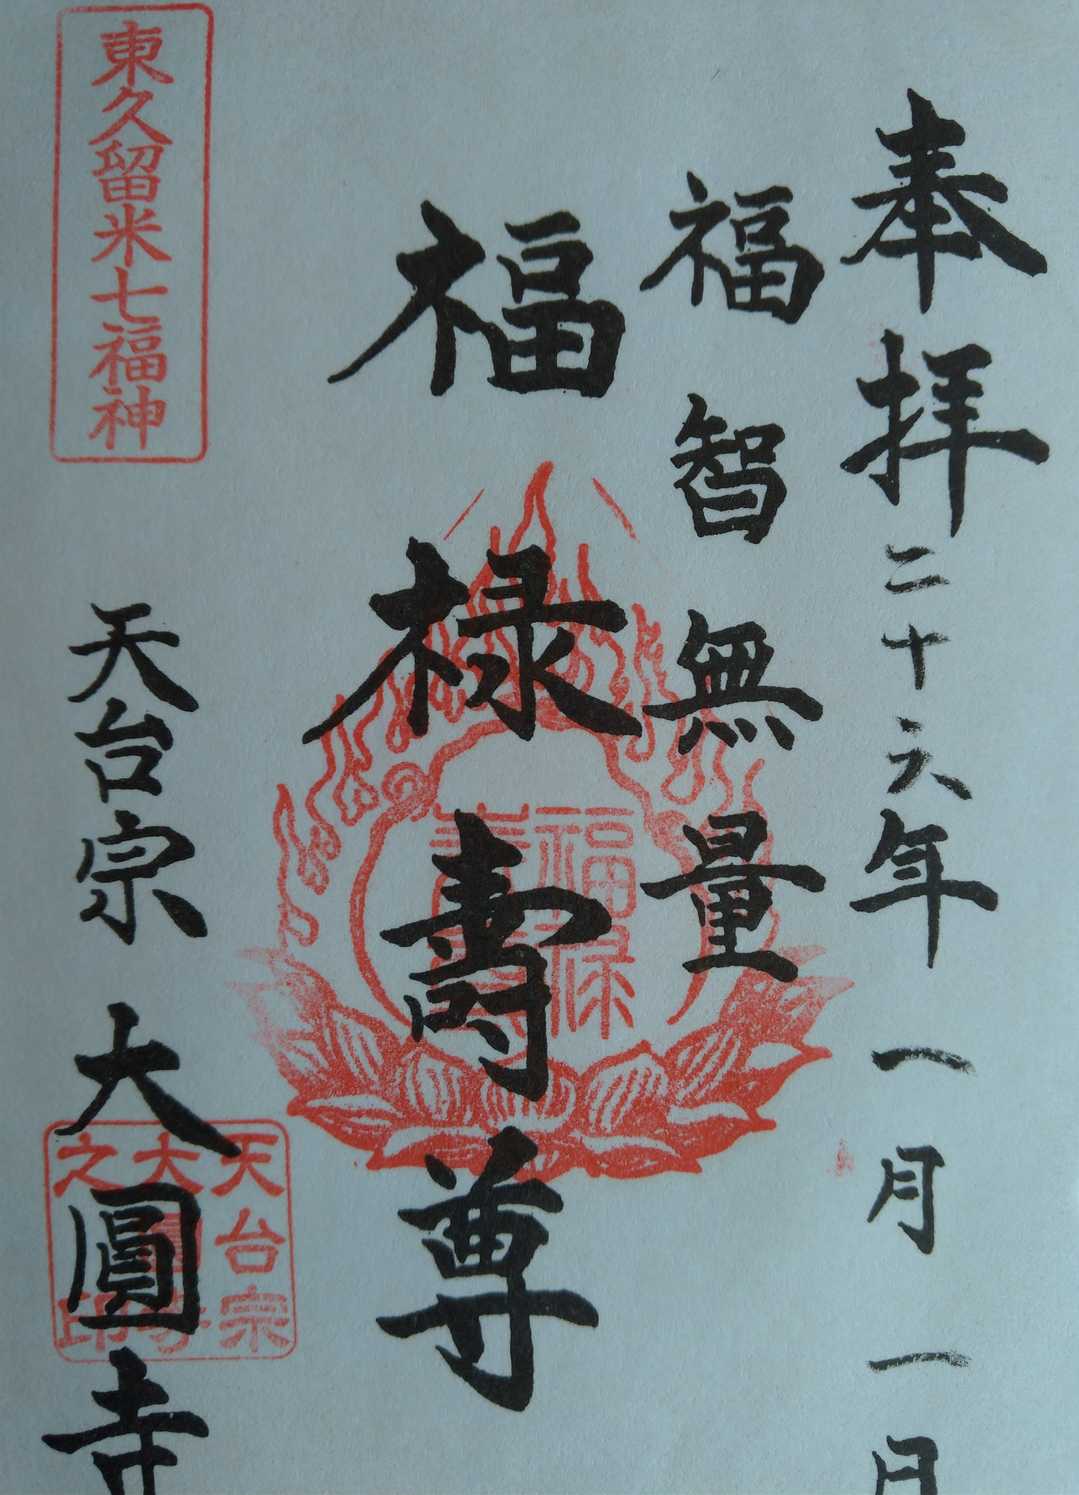 奉拝 二十六年一月一日
福智無量
福禄寿尊
東久留米七福神
天台宗 大圓寺
福禄
天台宗
大圓寺
之印